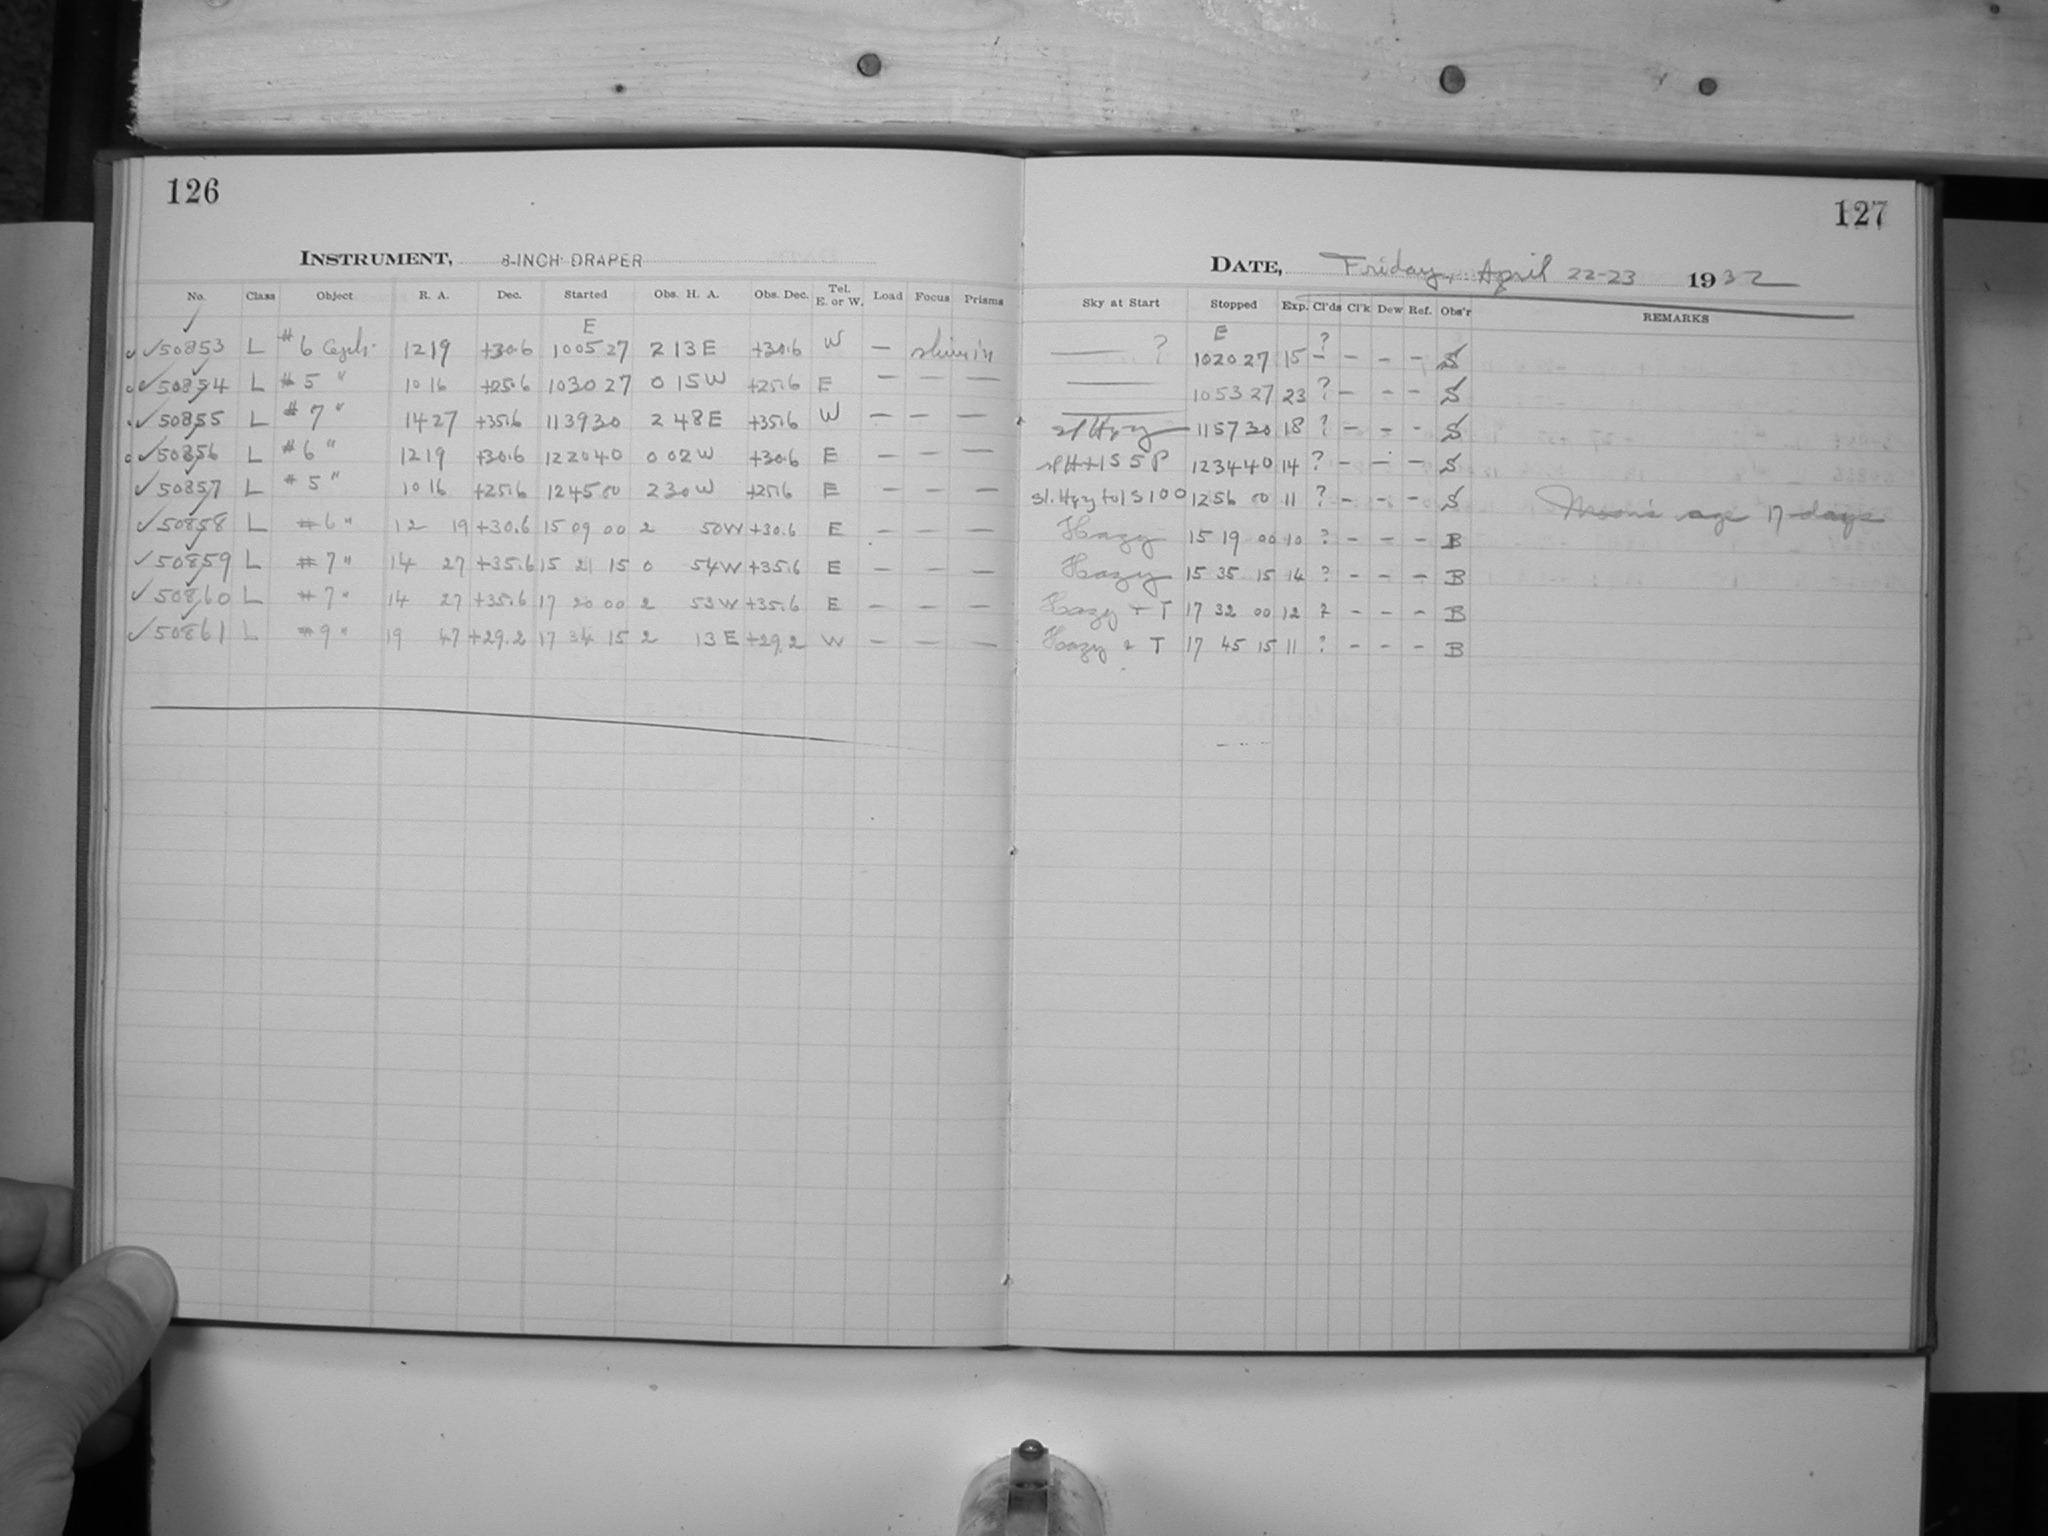 126
INSTRUMENT, 8-INCH DRAPER
No. Class Object R. A. Dec. Started Obs. H. A. Obs. Dec. Tel. E. or W. Load Focus Prisms
E
✓50853 L #6 1219 +30.6 1005 27 2 13 E +30.6 W —
✓50854 L #5 " 10 16 +25.6 1030 27 0 15 W +25.6 E — — —
✓50855 L #7 " 14 27 +35.6 1139 30 2 48 E +35.6 W — — —
✓50856 L #6 " 1219 +30.6 1220 40 0 02 W +30.6 E — — —
✓50857 L #5 " 10 16 +25.6 1245 00 2 30 W +25.6 E — — —
✓50858 L #6 " 12 19 +30.6 15 09 00 2 50 W +30.6 E — — —
✓50859 L #7 " 14 27 +35.6 15 21 15 0 54 W +35.6 E — — —
✓50860 L #7 " 14 27 +35.6 17 20 00 2 53 W +35.6 E — — —
✓50861 L #9 " 19 47 +29.2 17 34 15 2 13 E +29.2 W — — —
127
DATE, Friday, April 22-23 1932
Sky at Start Stopped Exp. Cl'ds Cl'k Dew Ref. Obs'r REMARKS
E
—— ? 1020 27 15 ? – – – – S
—— 1053 27 23 ? – – – S
sl Hzy 1157 30 18 ? – – – S
1234 40 14 ? – – – S
sl. Hzy to 1 S 100 1256 00 11 ? – – – S Moon's age 17 days
Hazy 15 19 00 10 ? – – – B
Hazy 15 35 15 14 ? – – – B
Hazy + T 17 32 00 12 ? – – – B
Hazy + T 17 45 15 11 ? – – – B